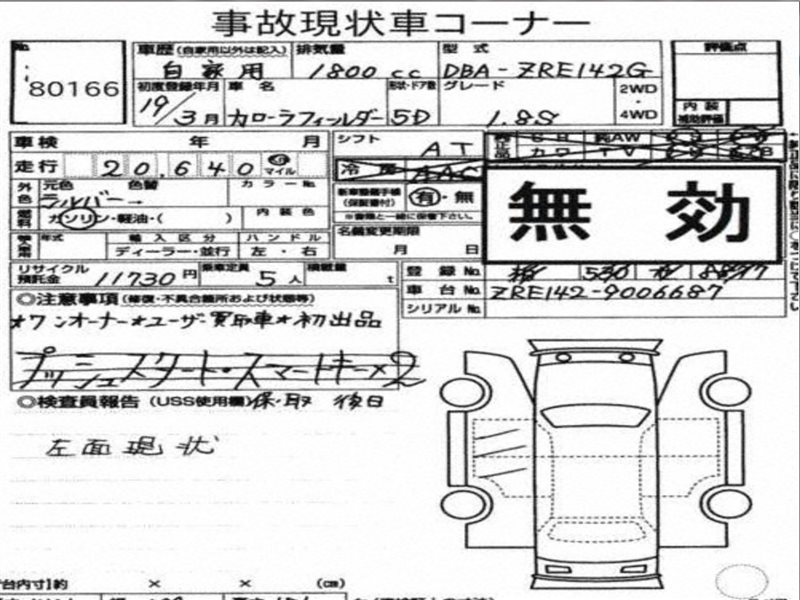 事故現状車コーナー
No. 80166
車歴(自家用以外は記入) 自家用
排気量 1800cc
型式 DBA-ZRE142G
評価点
初度登録年月 19/3月
車名 カローラフィールダー
形状・ドア数 5D
グレード 1.8S
2WD・4WD
内装補助評価
車検 年 月
シフト AT
走行 20,640 km マイル
冷房 AAC
外色 元色 シルバー→ 色替
カラーNo.
新車整備手帳(保証書付) 有・無
※書類と一緒に保管下さい。
無効
燃料 ガソリン・軽油・( )
内装色
年式 輸入区分 ハンドル
ディーラー・並行 左・右
名義変更期限 月 日
リサイクル預託金 11730円
乗車定員 5人
積載量 t
登録No. 530
車台No. ZRE142-9006687
シリアルNo.
◎注意事項(修復・不具合箇所および状態等)
★ワンオーナー★ユーザー買取車★初出品
プッシュスタート・スマートキー×2
◎検査員報告(USS使用欄) 保・取 後日
左面現状
台内寸)約 × × (cm)